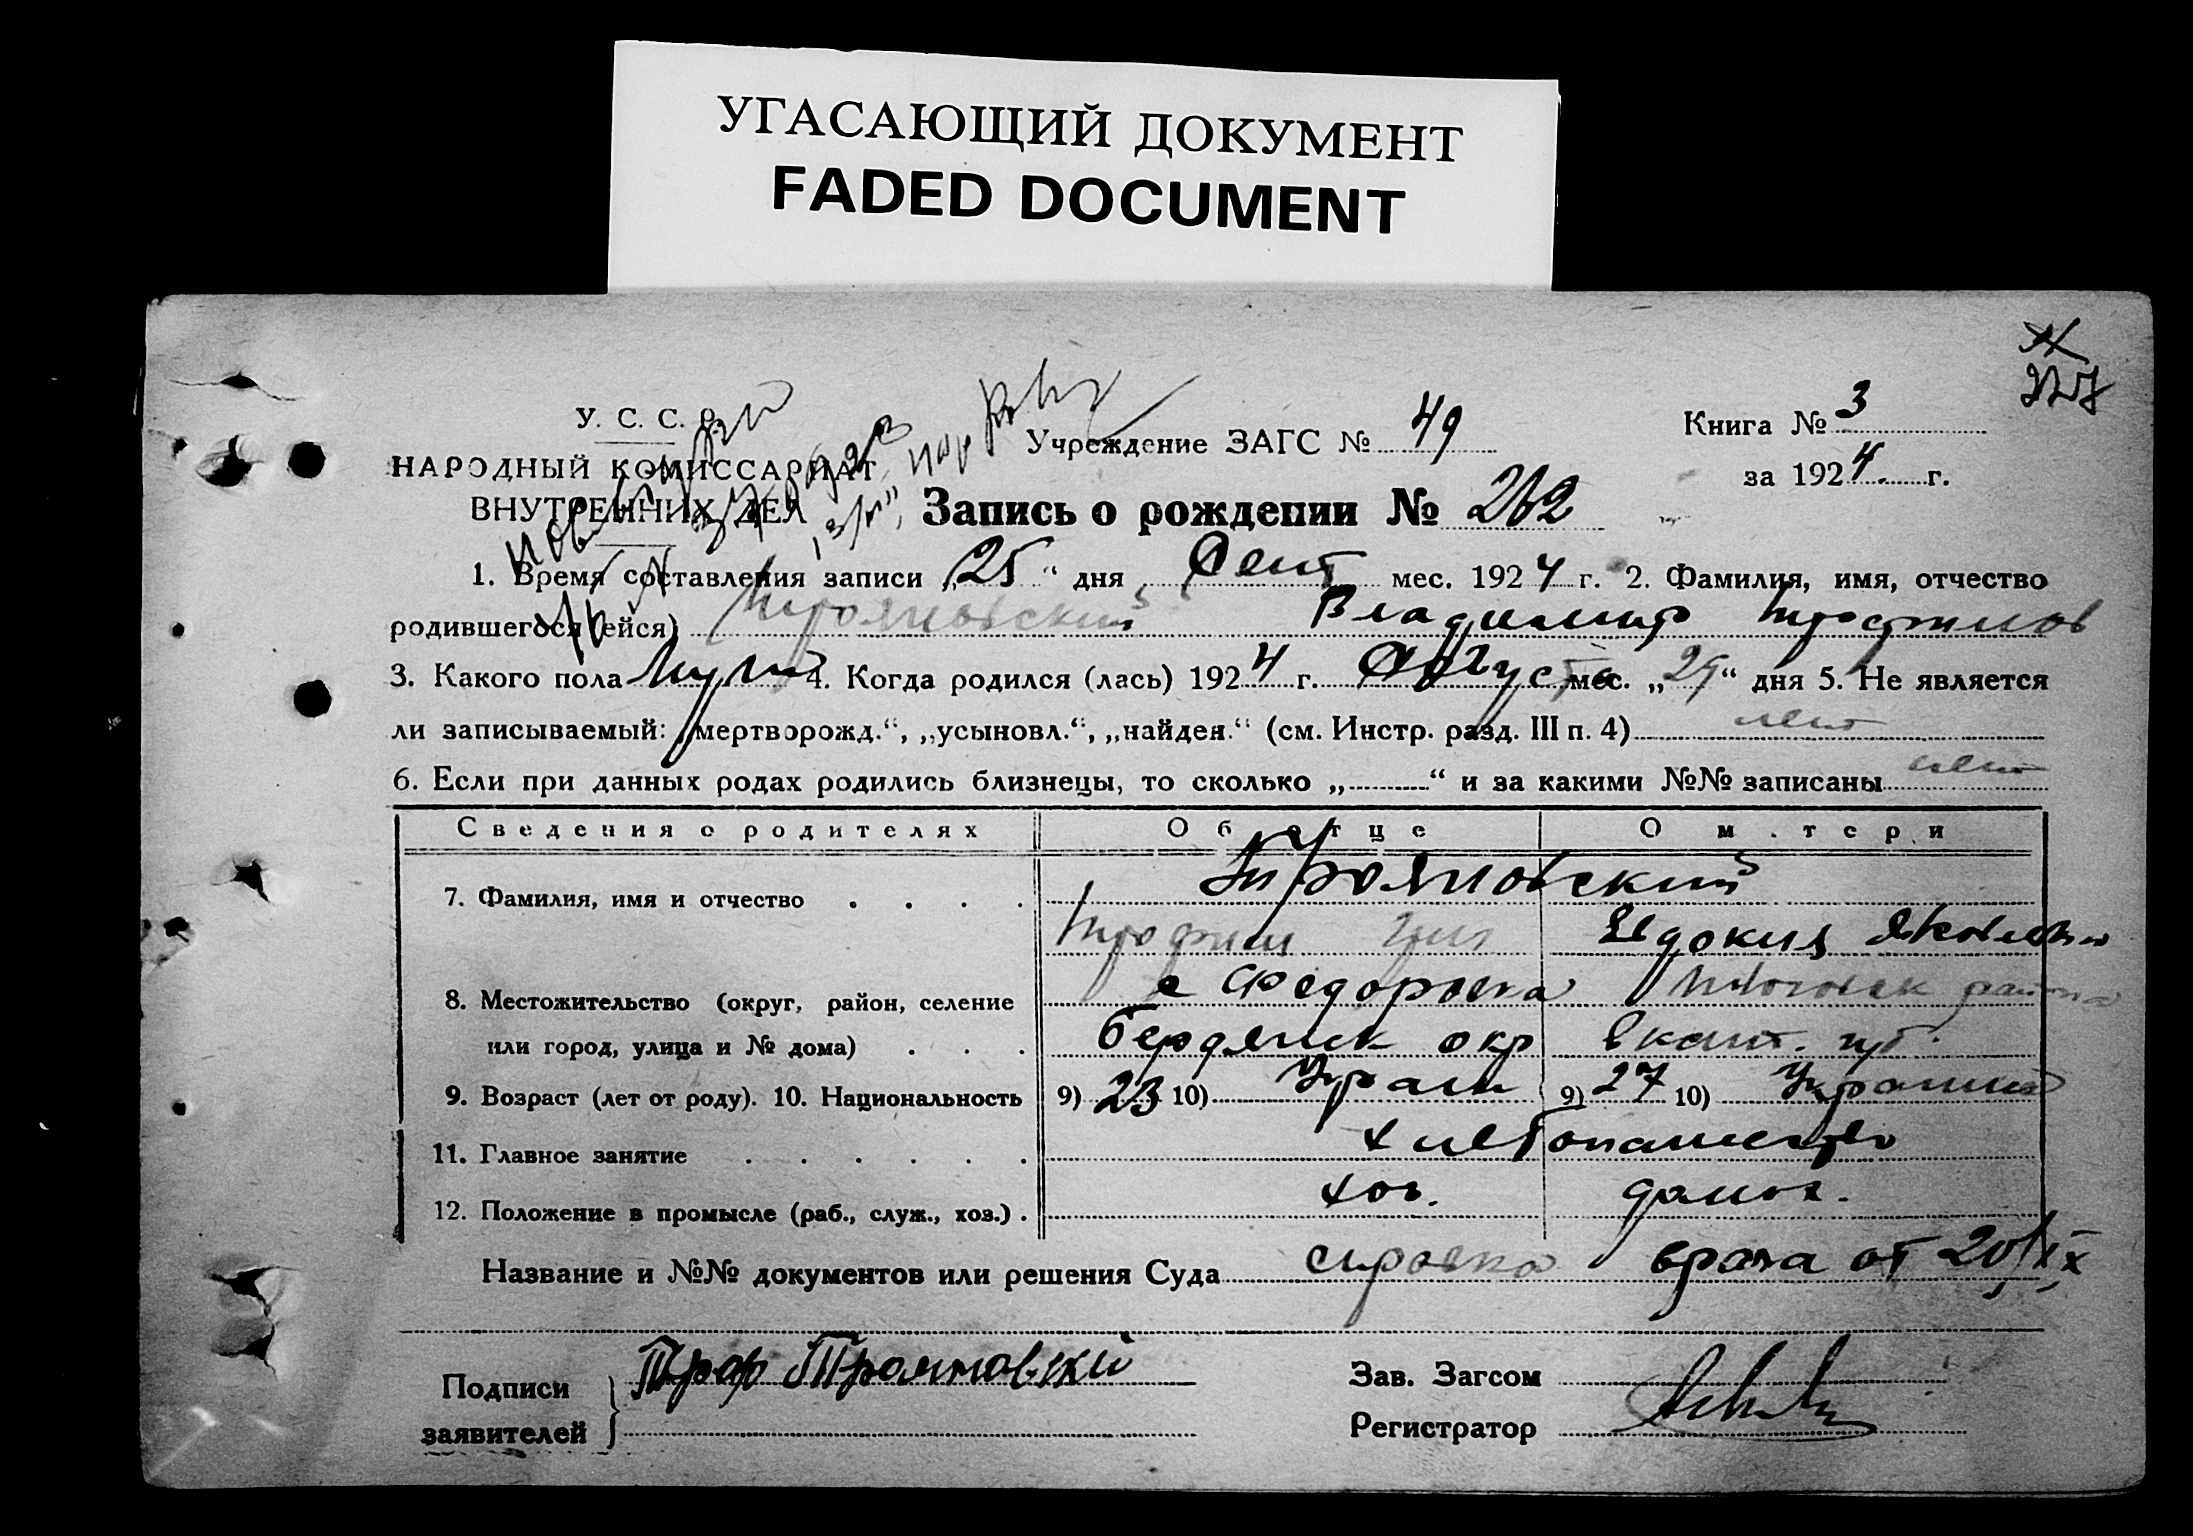 УГАСАЮЩИЙ ДОКУМЕНТ
FADED DOCUMENT
У. С. С. Р.
НАРОДНЫЙ КОМИССАРИАТ
ВНУТРЕННИХ ДЕЛ
Учреждение ЗАГС № 49
Книга № 3
за 1924 г.
Запись о рождении № 262
1. Время составления записи „25“ дня Сент мес. 1924 г. 2. Фамилия, имя, отчество
родившегося (ейся) Трояновский Владимир Трофимов
3. Какого пола Муж 4. Когда родился (лась) 1924 г. Августа мес. „29“ дня 5. Не является
ли записываемый: „мертворожд.“, „усыновл.“, „найден.“ (см. Инстр. разд. III п. 4) нет
6. Если при данных родах родились близнецы, то сколько „ “ и за какими №№ записаны нет
Сведения о родителях Об отце О матери
7. Фамилия, имя и отчество Трояновский
Трофим Евдокия Яковлевна
8. Местожительство (округ, район, селение с Федоровка района
или город, улица и № дома) Бердянск окр Екат. губ.
9. Возраст (лет от роду). 10. Национальность 9) 23 10) Украин 9) 27 10) Украинка
11. Главное занятие хлебопашество
12. Положение в промысле (раб., служ., хоз.) хоз. домох.
Название и №№ документов или решения Суда справка врача от 20/IX
Подписи заявителей Троф Трояновский
Зав. Загсом
Регистратор